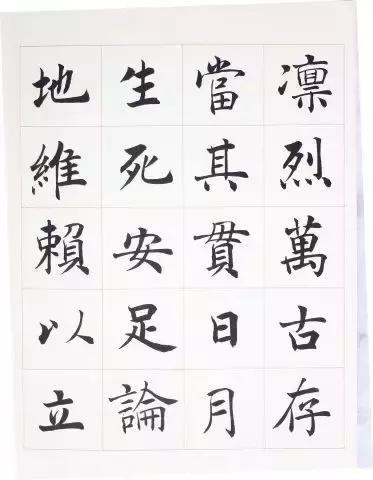 凛烈萬古存
當其貫日月
生死安足論
地維賴以立